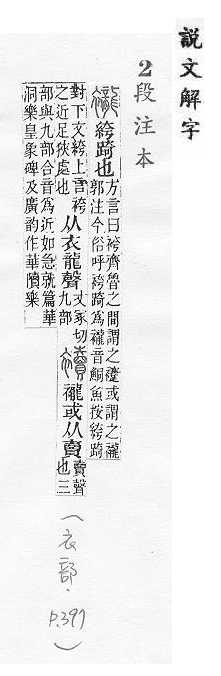 說文解字
2段注本
襱 絝踦也 方言曰袴齊魯之間謂之或謂之襱
郭注今俗呼袴踦爲襱音鮦魚按絝踦
對下文絝上言袴
之近足狹處也 从衣龍聲 丈冢切
九部 襱或从賣 賣聲
也三
部與九部合音爲近如急就篇華
洞樂皇象碑及廣韵作華樂
（衣部．P.397）